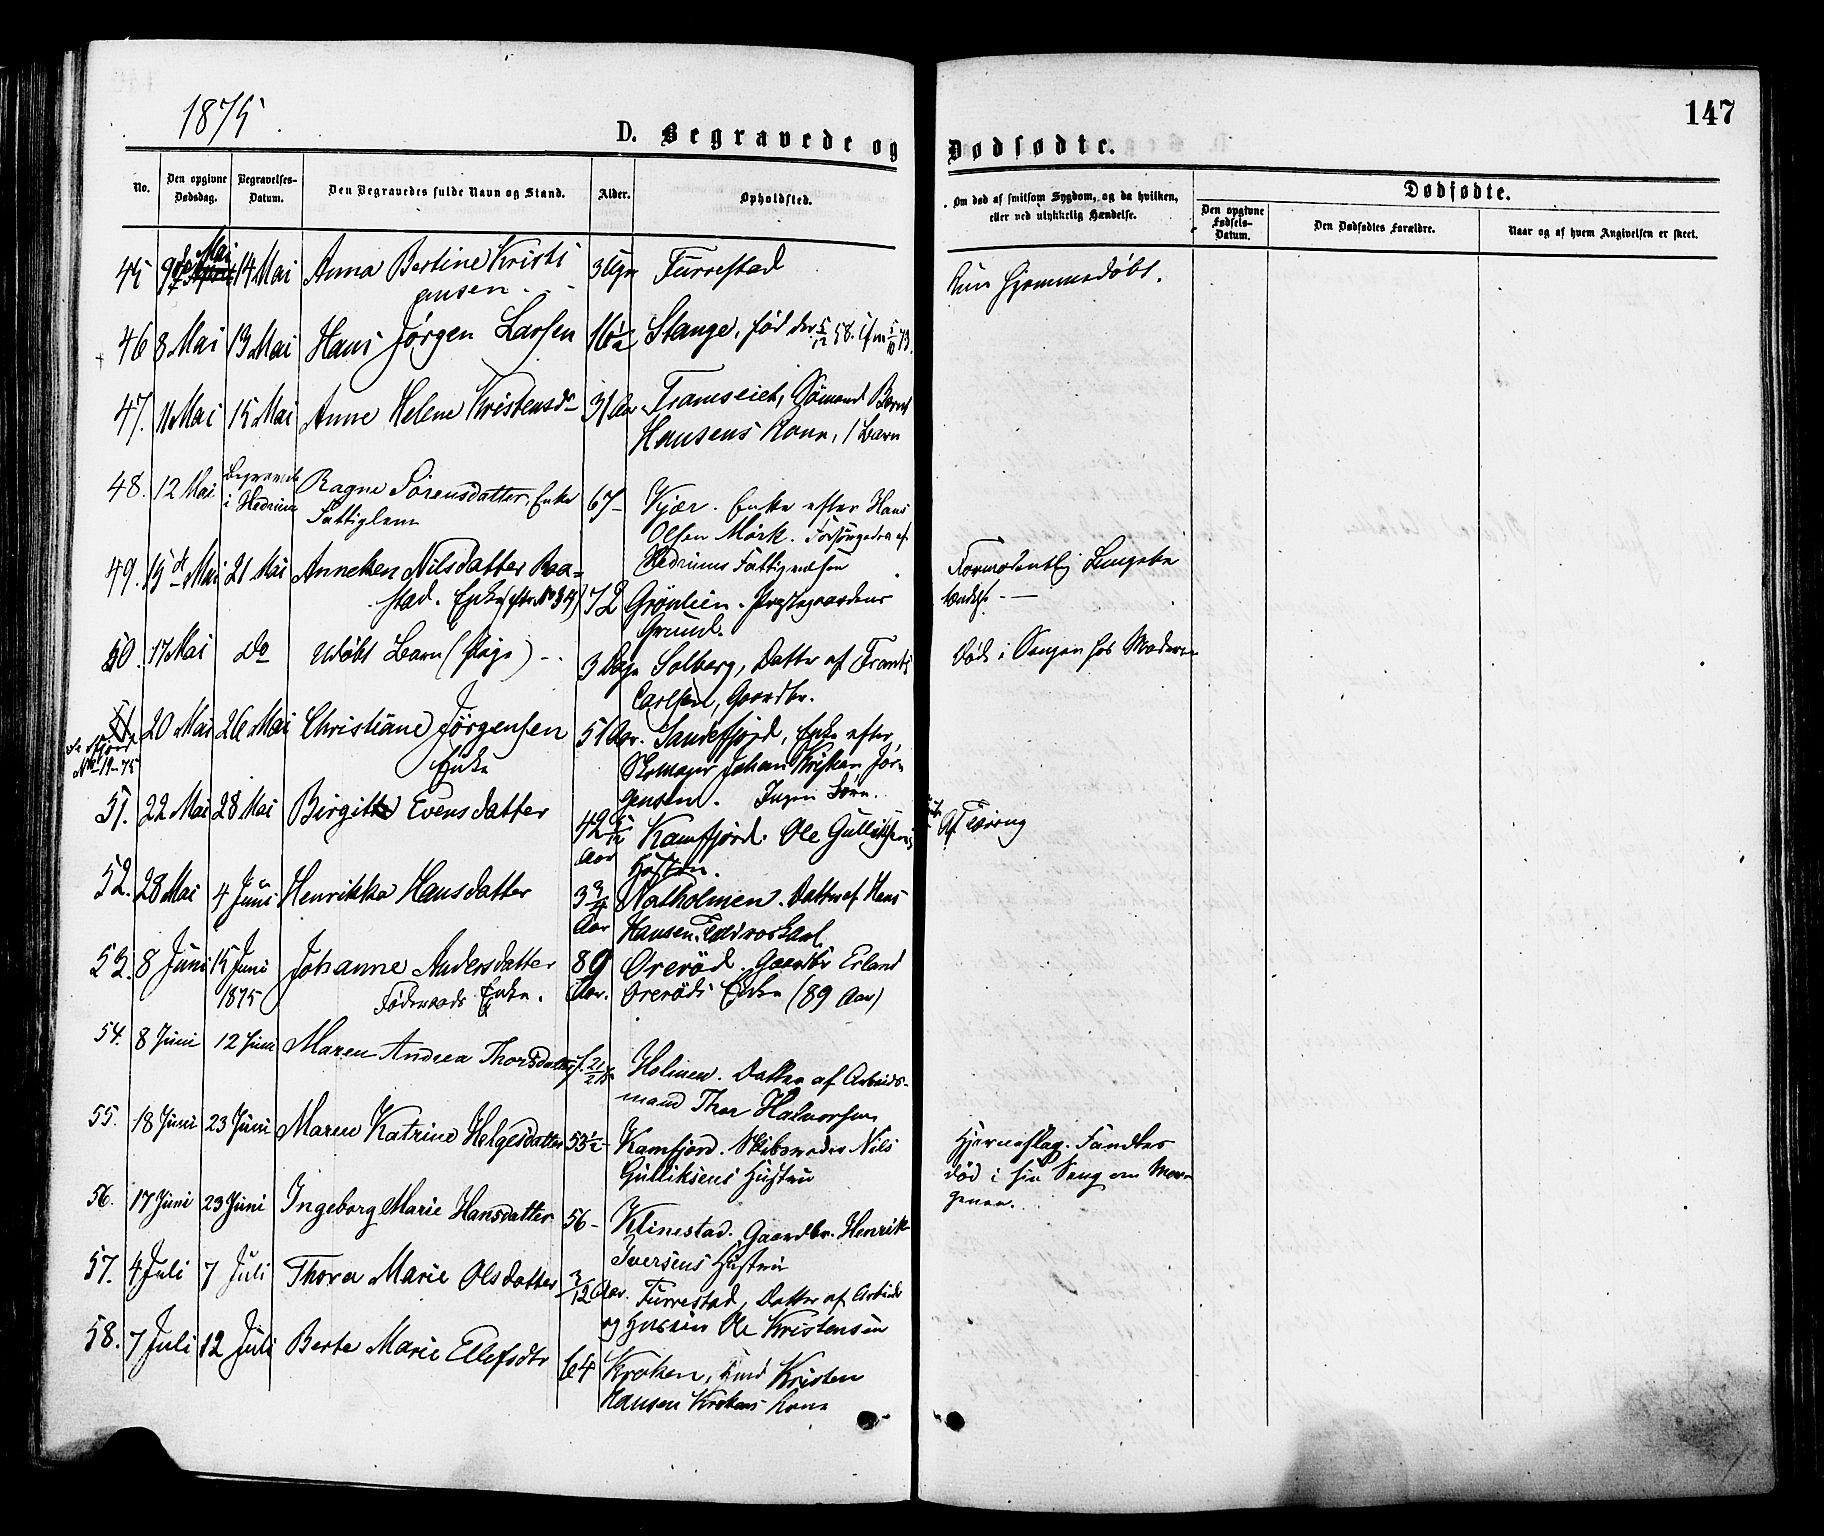 1875.
147
D. Begravede og Dødfødte.
No.
Den opgivne Dødsdag.
Begravelses-Datum.
Den Begravedes fulde Navn og Stand.
Alder.
Opholdsted.
Om død af smitsom Sygdom, og da hvilken, eller ved ulykkelig Hændelse.
Dødfødte.
Den opgivne Fødsels-Datum.
Den Dødfødtes Forældre.
Naar og af hvem Angivelsen er skeet.
45 9de Mai 14 Mai Anna Bertine Kristi Furrestad Kun hjemmedøbt.
ansen.
46 8 Mai 13 Mai Hans Jørgen Larsen 16½ Stange, født den 5/12 58.
47. 11 Mai 15 Mai Anne Helene Kristensd 31 Aar Framseiet, Sømand Bernt
Hansens Kone, 1 Barn
48. 12 Mai Begravet i Hedrum Ragne Sørensdatter, Enke 67 Kjær. Enke efter Hans
Fattiglem Olsen Mørk. Forsørgedes af
Hedrums Fattigvæsen
49. 15 de Mai 21 Mai Anneken Nilsdatter Raa- Formodentlig Lungebe
stad. Enke 72 Grønlien. Præstegaardens tændelse
Grund.
50. 17 Mai Do Udøbt Barn (Pige) 3 Dage Solberg, Datter af Frants Død i Sengen hos Moderen
Carlsen, Gaardbr.
51 20 Mai 26 Mai Christiane Jørgensen 51 Aar. Sandefjord, Enke efter
No 19-75 Enke Skomager Johan Kristian Jør-
gensen. Ingen Børn.
51. 22 Mai 28 Mai Birgitte Evensdatter 42 5/12 Aar Kamfjord. Ole Gulliksens Af Tæring
Hustru.
52. 28 Mai 4 Juni Henrikka Hansdatter 3 3/4 Aar Natholmen. Datter af Hans
Hansen
53. 8 Juni 15 Juni 1875 Johanne Andersdatter 89 Aar. Orerød. Gaardbr Erland
Føderaads Enke. Orerøds Enke (89 Aar)
54. 8 Juni 12 Juni Maren Andrea Thorsdatter Holmen. Datter af Arbeids-
mand Thor Halvorsen
55. 18 Juni 23 Juni Maren Katrine Helgesdatter 53½ Kamfjord. Skibsreder Nils Hjerneslag. Fandtes
Gulliksens Hustru død i sin Seng om Mor-
genen.
56. 17 Juni 23 Juni Ingeborg Marie Hansdatter 56 Klinestad. Gaardbr. Henrik
Iversens Hustru
57. 4 Juli 7 Juli Thora Marie Olsdatter 3/12 Aar. Furrestad, Datter af Arbeids
og Husm Ole Kristensen
58. 7 Juli 12 Juli Berte Marie Ellefsdtr 64 Kroken, Husm Kristen
Hansen Krokens Kone